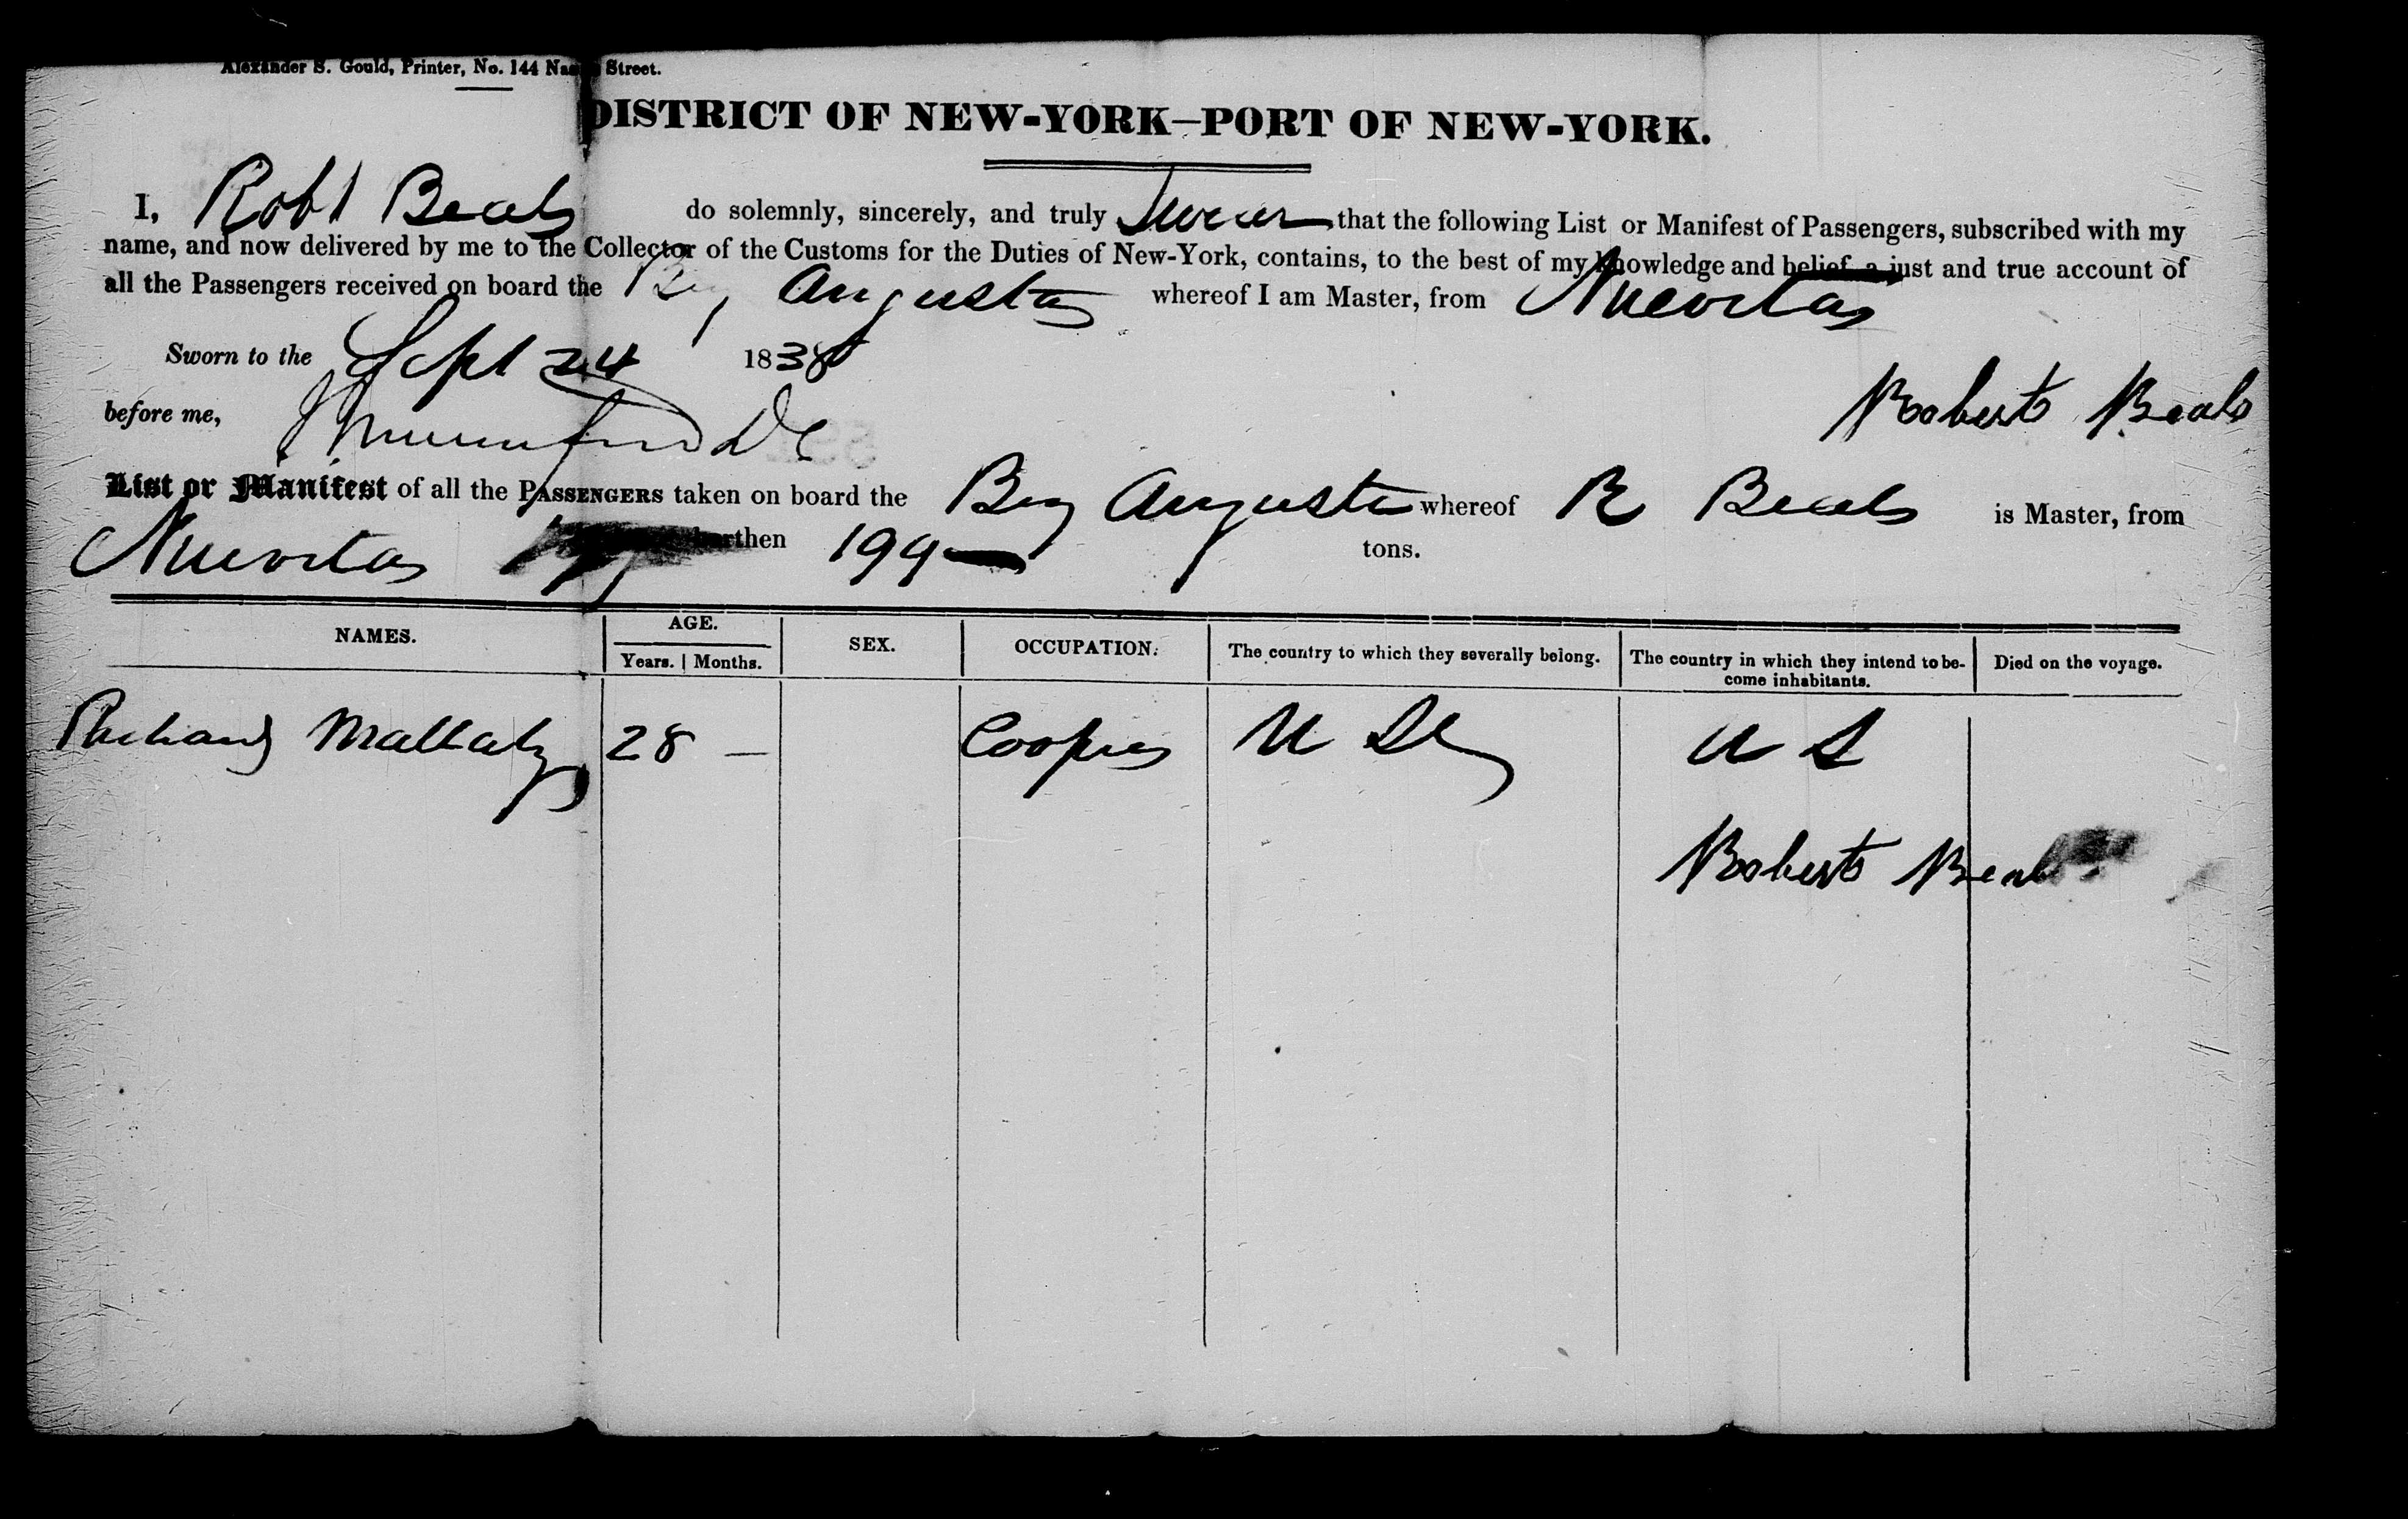 Alexander S. Gould, Printer, No. 144 Nassau Street.
DISTRICT OF NEW-YORK—PORT OF NEW-YORK.
I, Robt Beals do solemnly, sincerely, and truly Swear that the following List or Manifest of Passengers, subscribed with my
name, and now delivered by me to the Collector of the Customs for the Duties of New-York, contains, to the best of my knowledge and belief, a just and true account of
all the Passengers received on board the Brig Augusta whereof I am Master, from Nuevitas
Sworn to the Sept 24 1838 Robert Beals
before me,
List or Manifest of all the PASSENGERS taken on board the Brig Augusta whereof R Beals is Master, from
Nuevitas burthen 199 tons.
NAMES. AGE. SEX. OCCUPATION. The country to which they severally belong. The country in which they intend to be-
come inhabitants. Died on the voyage.
Years. Months.
Richard 28 — Cooper U S U S
Robert Beals